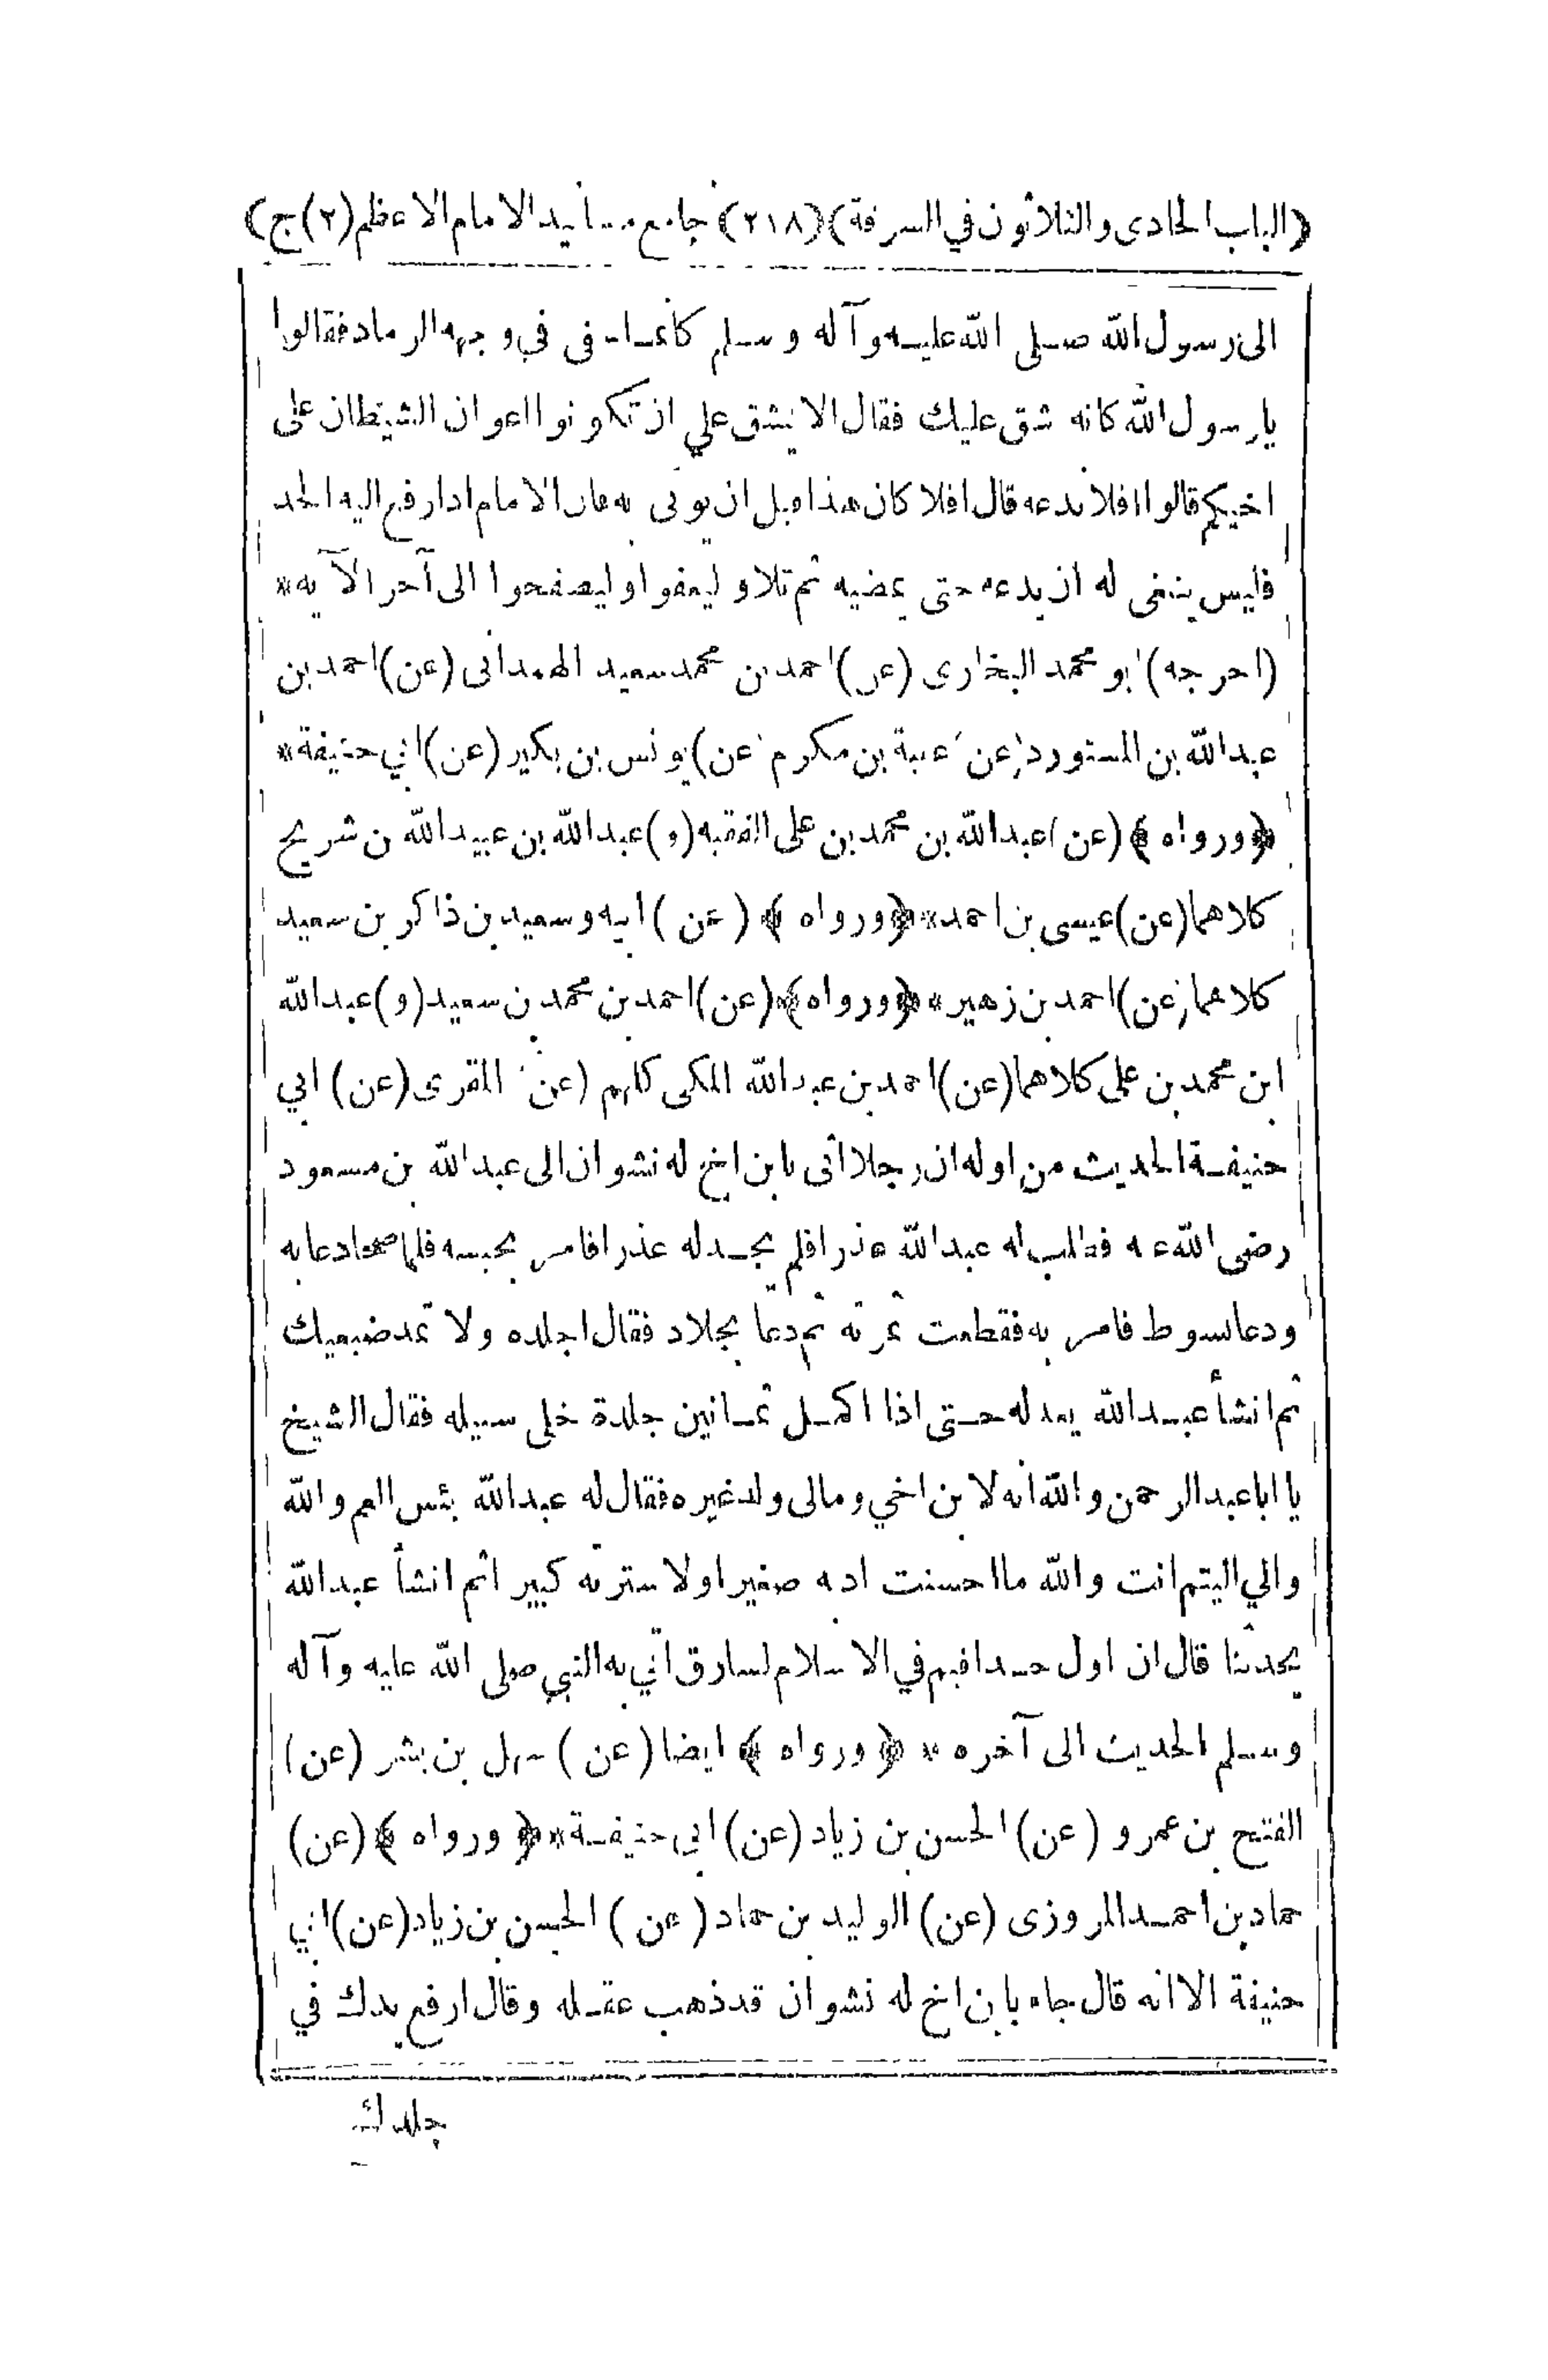 (الباب الحادى والثلاثون في السرقة) (٢١٨) جامع مسانيد الامام الاعظم (٢) ج)
الى رسول الله صلى الله عليه وآله وسلم كأنما سفى في وجهه الرماد فقالوا
يا رسول الله كانه شق عليك فقال الا يشق علي ان تكونوا اعوان الشيطان على
اخيكم قالوا افلا ندعه قال افلا كان هذا قبل ان يوتى به فان الامام اذا رفع اليه الحد
فليس ينبغى له ان يدعه حتى يمضيه ثم تلا وليعفوا وليصفحوا الى آخر الآيه *
(اخرجه) ابو محمد البخارى (عن) احمد بن محمد سعيد الهمدانى (عن) احمد بن
عبد الله بن المستورد (عن) عقبة بن مكرم (عن) يونس بن بكير (عن) ابي حنيفة *
﴿ورواه﴾ (عن) عبد الله بن محمد بن على الفقيه (و) عبد الله بن عبيد الله بن شريح
كلاهما (عن) عيسى بن احمد * ﴿ورواه﴾ (عن) ابيه وسعيد بن ذاكر بن سعيد
كلاهما (عن) احمد بن زهير * ﴿ورواه﴾ (عن) احمد بن محمد بن سعيد (و) عبد الله
ابن محمد بن على كلاهما (عن) احمد بن عبد الله المكى كلهم (عن) المقرى (عن) ابي
حنيفة الحديث من اوله ان رجلا اتى بابن اخ له نشوان الى عبد الله بن مسعود
رضى الله عنه فطلب له عبد الله عذرا فلم يجد له عذرا فامر بحبسه فلما صحا دعا به
ودعا بسوط فامر به فقطعت ثمرته ثم دعا بجلاد فقال اجلده ولا تمد ضبعيك
ثم انشأ عبد الله يعد له حتى اذا اكمل ثمانين جلدة خلى سبيله فقال الشيخ
يا ابا عبد الرحمن والله انه لا بن اخي ومالى ولد غيره فقال له عبد الله بئس العم والله
والي اليتم انت والله ما احسنت ادبه صغيرا ولا سترته كبير اثم انشأ عبد الله
يحدثنا قال ان اول حد اقيم في الاسلام لسارق اتي به النبي صلى الله عليه وآله
وسلم الحديث الى آخره * ﴿ورواه﴾ ايضا (عن) سهل بن بشر (عن)
الفتح بن عمرو (عن) الحسن بن زياد (عن) ابى حنيفة * ﴿ورواه﴾ (عن)
حماد بن احمد المروزى (عن) الوليد بن حماد (عن) الحسن بن زياد (عن) ابي
حنيفة الا انه قال جاء بابن اخ له نشوان قد ذهب عقله وقال ارفع يدك في
جلدك